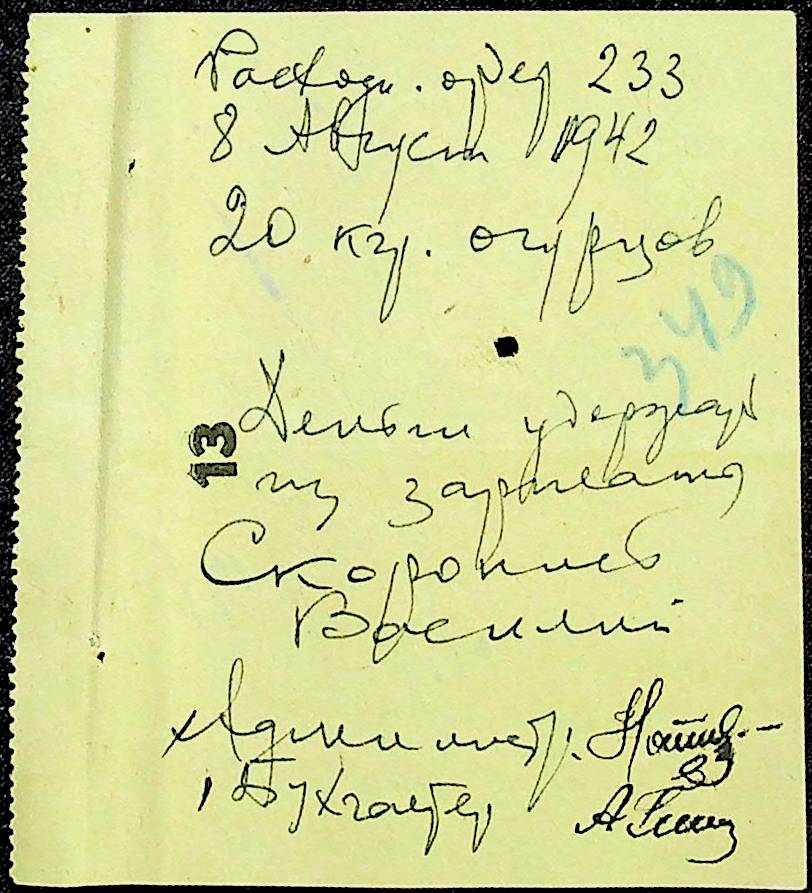 Расходн. ордер 233
8 Август 1942
20 кгр. огурцов
349
Деньги удержать
13
из зарплаты
Скоропис
Василий
Администр.
Бухгалтер